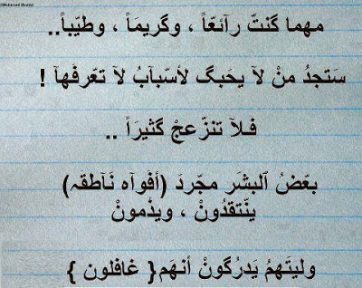 مهما گنتّ رآئعّاً ، وگريمَاً ، وطيّباً..
سَتجدُ منْ لآ يحَبگ لأسّبآبُ لآ تعّرفَهآ !
فـلآ تنزّعجْ گثيرَاً ..
بعّضُ آلبشَر مجّردَ (أفوآه نَآطقہ)
ينّتقدُونْ ، ويذْمونْ
وليتَهمُ يَدرُگونْ أنهَم{ غافلون }